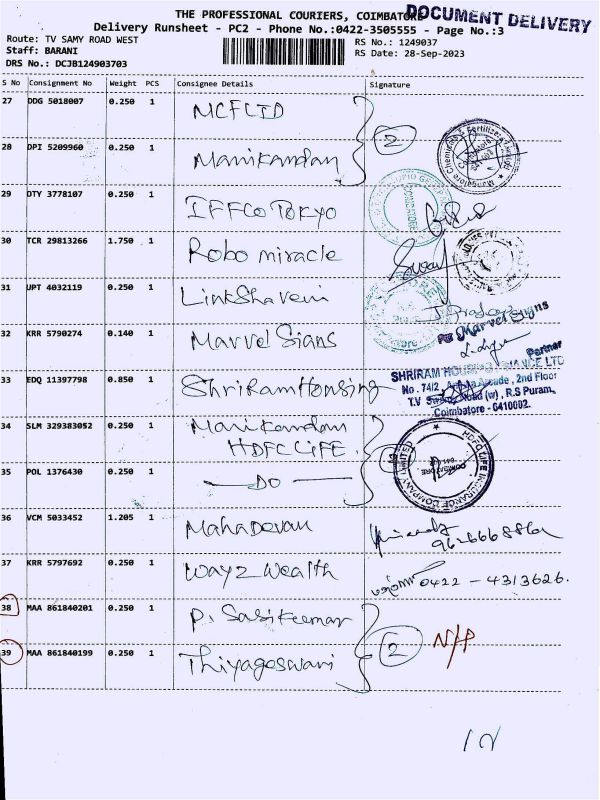 THE PROFESSIONAL COURIERS, COIMBATORE
DOCUMENT DELIVERY
Delivery Runsheet - PC2 - Phone No.:0422-3505555 - Page No.:3
Route: TV SAMY ROAD WEST
RS No.: 1249037
Staff: BARANI
RS Date: 28-Sep-2023
DRS No.: DCJB124903703
S No Consignment No Weight PCS Consignee Details Signature
27 DDG 5018007 0.250 1 MCFLTD
28 DPI 5209960 0.250 1 Manikandan 2
29 DTY 3778107 0.250 1 IFFCO TOKYO
30 TCR 29813266 1.750 1 Robo miracle
31 UPT 4032119 0.250 1 Link Shaveni
32 KRR 5790274 0.140 1 Marvel Sians
Marvel Signs
Partner
33 EDQ 11397798 0.850 1 ShriRam Housing
SHRIRAM HOUSING FINANCE LTD
No. 74/2, Arcade, 2nd Floor
T.V Swamy Road (w), R.S Puram,
Coimbatore - 6410002.
34 SLM 329383052 0.250 1 Manikandan
HDFC LIFE.
HDFC LIFE INSURANCE COMPANY LIMITED
COIMBATORE
35 POL 1376430 0.250 1 — DO —
36 VCM 5033452 1.205 1 Mahadevan
37 KRR 5797692 0.250 1 Wayz Wealth 0422 - 4313626.
38 MAA 861840201 0.250 1 P. Sasikumar
39 MAA 861840199 0.250 1 Thiyageswari 2 N/P